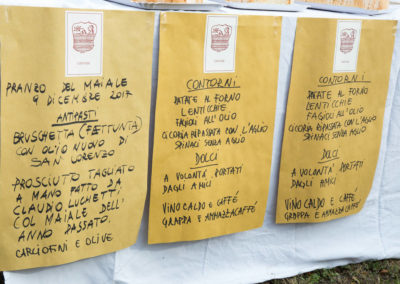 PRANZO DEL MAIALE
9 DICEMBRE 2017
ANTIPASTI
BRUSCHETTA (FETTUNTA)
CON OLIO NUOVO DI
SAN LORENZO
PROSCIUTTO TAGLIATO
A MANO FATTO DA
CLAUDIO LUCHETTI
COL MAIALE DELL'
ANNO PASSATO.
CARCIOFINI E OLIVE
CONTORNI
PATATE AL FORNO
LENTICCHIE
FAGIOLI ALL'OLIO
CICORIA RIPASSATA CON L'AGLIO
SPINACI SENZA AGLIO
DOLCI
A VOLONTÀ PORTATI
DAGLI AMICI
VINO CALDO E CAFFÉ
GRAPPA E AMMAZZACAFFÉ
CONTORNI
PATATE AL FORNO
LENTICCHIE
FAGIOLI ALL'OLIO
CICORIA RIPASSATA CON L'AGLIO
SPINACI SENZA AGLIO
DOLCI
A VOLONTA' PORTATI
DAGLI AMICI
VINO CALDO E CAFFÉ
GRAPPA E AMMAZZA CAFFÉ